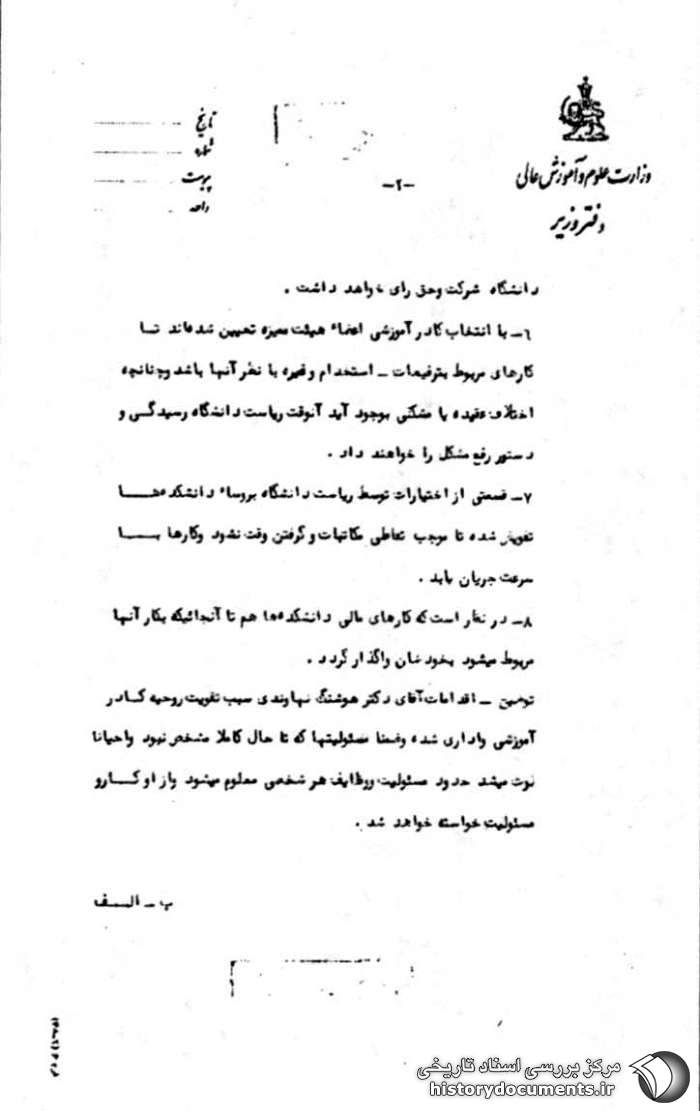 وزارت علوم و آموزش عالی
دفتر وزیر
تاریخ
شماره
پیوست
واحد
-۲-
دانشگاه شرکت وحق رای خواهد داشت .
۶- با انتخاب کادر آموزشی اعضاء هیئت ممیزه تعیین شده‌اند تا
کارهای مربوط بترفیعات - استخدام وغیره با نظر آنها باشد وچنانچه
اختلاف عقیده یا مشکلی بوجود آید آنوقت ریاست دانشگاه رسیدگی و
دستور رفع مشکل را خواهند داد .
۷- قسمتی از اختیارات توسط ریاست دانشگاه بروساء دانشکده‌ها
تفویض شده تا موجب تعاطی مکاتبات و گرفتن وقت نشود وکارها با
سرعت جریان یابد .
۸- در نظر است که کارهای مالی دانشکده‌ها هم تا آنجائیکه بکار آنها
مربوط میشود بخودشان واگذار گردد .
توضیح - اقدامات آقای دکتر هوشنگ نهاوندی سبب تقویت روحیه کادر
آموزشی واداری شده وضمنا مسئولیتها که تا حال کاملا مشخص نبود واحیانا
لوث میشد حدود مسئولیت ووظایف هر شخصی معلوم میشود واز او کار و
مسئولیت خواسته خواهد شد .
ب - الف
مرکز بررسی اسناد تاریخی
historydocuments.ir